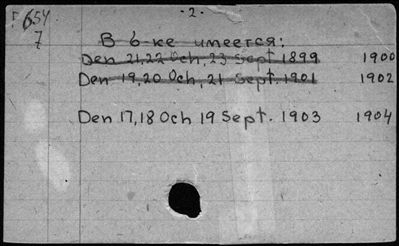 Г 654
7
- 2. -
В б-ке имеется:
Den 21, 22 Och, 23 Sept 1899 1900
Den 19, 20 Och, 21 Sept. 1901 1902
Den 17, 18 Och 19 Sept. 1903 1904